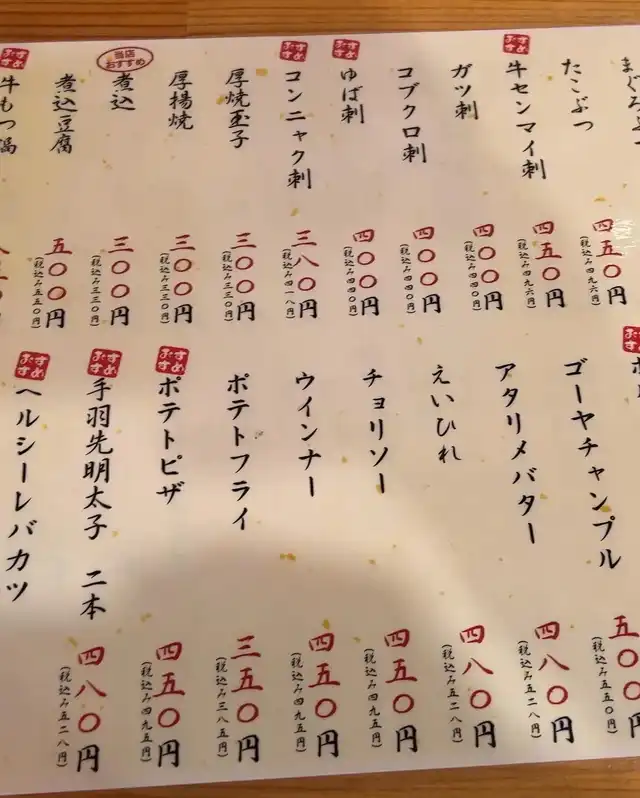 たこぶつ
四五〇円
(税込み四九六円)
おすすめ
牛センマイ刺
四五〇円
(税込み四九六円)
ガツ刺
四〇〇円
(税込み四四〇円)
コブクロ刺
四〇〇円
(税込み四四〇円)
おすすめ
ゆば刺
四〇〇円
(税込み四四〇円)
おすすめ
コンニャク刺
三八〇円
(税込み四一八円)
厚焼玉子
三〇〇円
(税込み三三〇円)
厚揚焼
三〇〇円
(税込み三三〇円)
当店おすすめ
煮込
三〇〇円
(税込み三三〇円)
煮込豆腐
五〇〇円
(税込み五五〇円)
おすすめ
牛もつ鍋
ゴーヤチャンプル
五〇〇円
(税込み五五〇円)
アタリメバター
四八〇円
(税込み五二八円)
えいひれ
四八〇円
(税込み五二八円)
チョリソー
四五〇円
(税込み四九五円)
ウインナー
四五〇円
(税込み四九五円)
ポテトフライ
三五〇円
(税込み三八五円)
おすすめ
ポテトピザ
四五〇円
(税込み四九五円)
おすすめ
手羽先明太子 二本
四八〇円
(税込み五二八円)
おすすめ
ヘルシーレバカツ